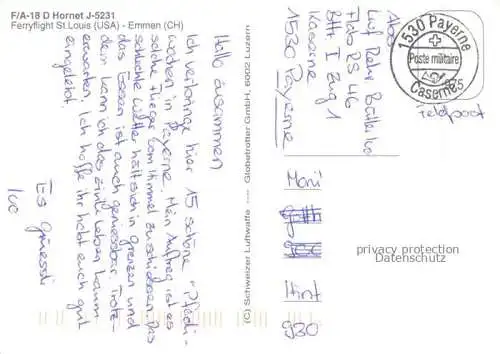 F/A-18 D Hornet J-5231
Ferryflight St.Louis (USA) - Emmen (CH)
Hallo zusammen
Ich verbringe hier 15 schöne "Pfadi-
wochen in Payerne. Mein Auftrag ist es
solche Flieger vom Himmel zu schiessen. Das
schlechte Wetter hält sich in grenzen und
das Essen ist auch geniessbar. Trotz-
dem kann ich das zivile Leben kaum
erwarten. Ich hoffe ihr habt euch gut
eingelebt.
Es Grüessli
(C) Schweizer Luftwaffe ---- Globetrotter GmbH, 6002 Luzern
Absr
Flab RS 46
Bttr I Zug 1
Kaserne
1530 Payerne
1530 Payerne
Poste militaire
Casernes
Feldpost
privacy protection
Datenschutz